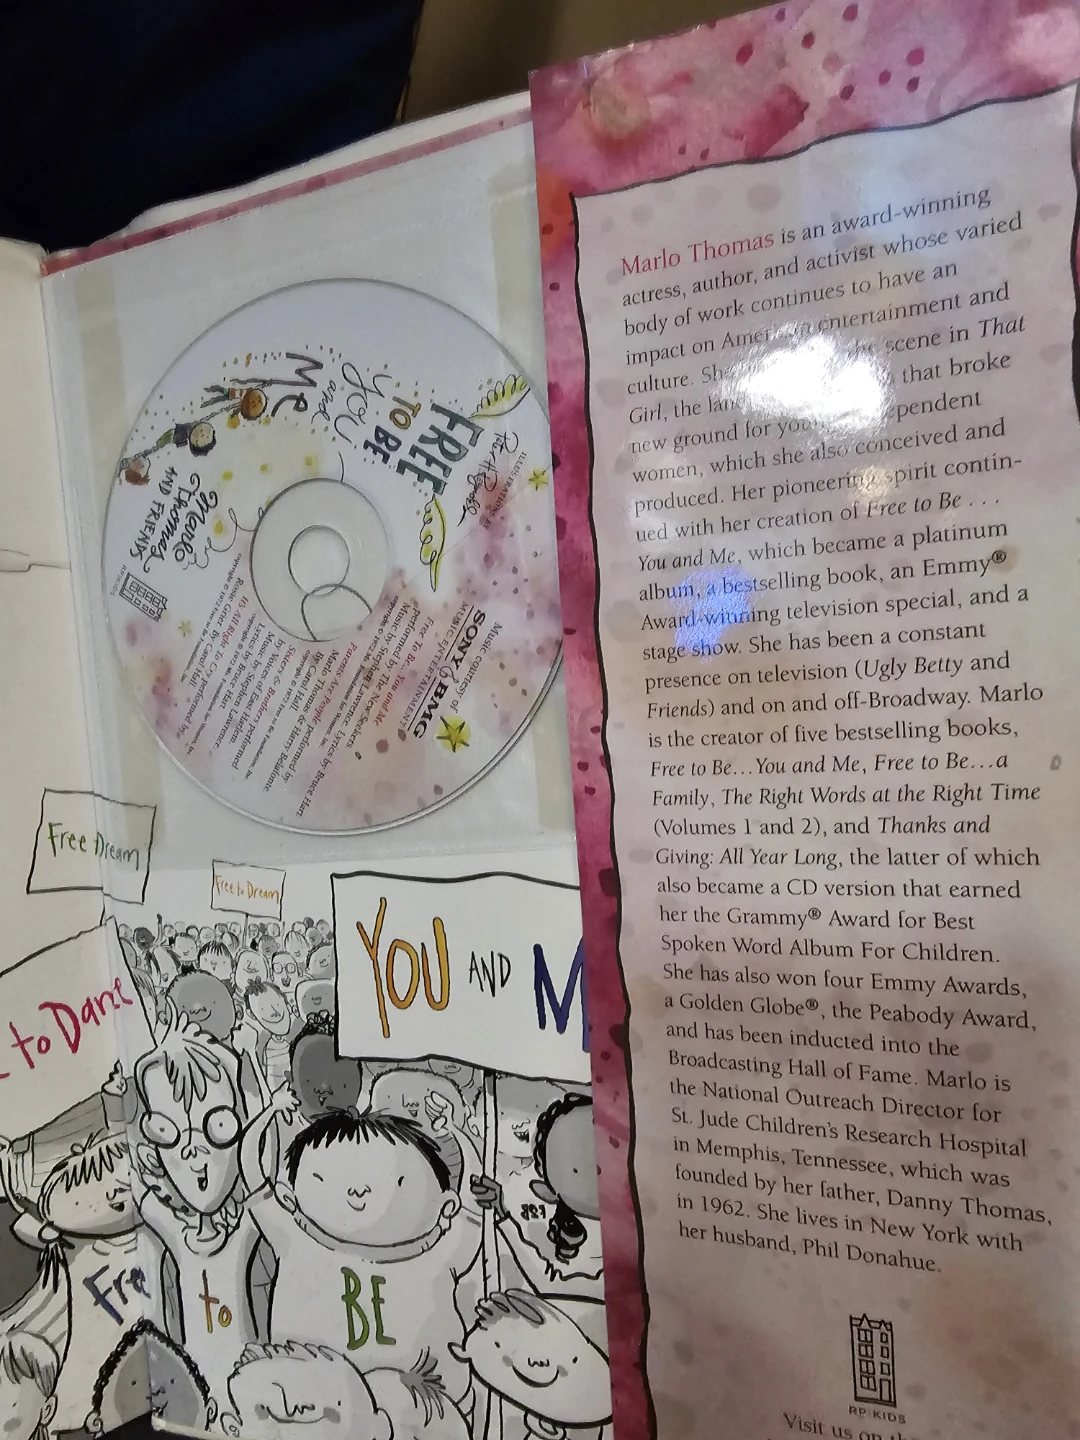 FREE
TO BE
YOU
and
ME
Marlo
Thomas
AND FRIENDS
ILLUSTRATIONS BY
RP KIDS
Music courtesy of
SONY BMG
MUSIC ENTERTAINMENT
Free To Be... You and Me
performed by The New Seekers.
Music by Stephen Lawrence. Lyrics by Bruce Hart.
Parents Are People performed by
Marlo Thomas & Harry Belafonte
By Carol Hall
Sisters & Brothers performed
by Voices of East Harlem.
Music by Stephen Lawrence.
Lyrics by Bruce Hart.
It's All Right To Cry performed by
Rosie Grier. By Carol Hall.
Free Dream
Free to Dream
to Dance
YOU AND M
Free
to
BE
Marlo Thomas is an award-winning
actress, author, and activist whose varied
body of work continues to have an
impact on American entertainment and
culture. scene in That
Girl, the that broke
new ground for
women, which she also conceived and
produced. Her pioneering spirit contin-
ued with her creation of Free to Be . . .
You and Me, which became a platinum
album, a bestselling book, an Emmy®
Award-winning television special, and a
stage show. She has been a constant
presence on television (Ugly Betty and
Friends) and on and off-Broadway. Marlo
is the creator of five bestselling books,
Free to Be...You and Me, Free to Be...a
Family, The Right Words at the Right Time
(Volumes 1 and 2), and Thanks and
Giving: All Year Long, the latter of which
also became a CD version that earned
her the Grammy® Award for Best
Spoken Word Album For Children.
She has also won four Emmy Awards,
a Golden Globe®, the Peabody Award,
and has been inducted into the
Broadcasting Hall of Fame. Marlo is
the National Outreach Director for
St. Jude Children's Research Hospital
in Memphis, Tennessee, which was
founded by her father, Danny Thomas,
in 1962. She lives in New York with
her husband, Phil Donahue.
RP KIDS
Visit us on the